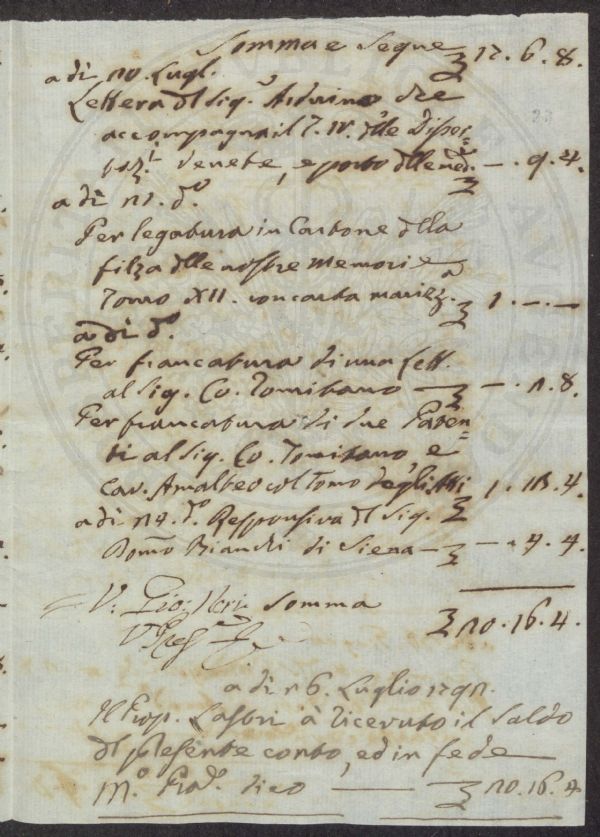 Somma e Segue ₤ 17. 6. 8.
a dì 20. Lugl.
Lettera dl Sig. Arduino che
accompagna il T. IV. dlle Disser=
taz.i Venete, e porto dlle med. — . 9. 4.
₤
a dì 21. d.o
Per legatura in Cartone dlla
filza dlle nostre Memorie
Tomo XII. con carta marizz.a ₤ 1. — . —
a dì d.o
Per francatura di una lett.
al Sig. Co. Tomitano — ₤ — .
Per francatura di due Paten=
ti al Sig. Co. Tomitano, e
Cav. Amalteo col Tomo degli Atti ₤ 1. 4.
a dì d.o Responsiva dl Sig.
Bianchi di Siena — ₤ — . 4. 4.
V. Somma
₤ 20. 16. 4.
a dì 26. Luglio
Il Prop. Lastri à ricevuto il Saldo
dl presente conto, ed in fede
M.o P.a dico — ₤ 20. 16. 4